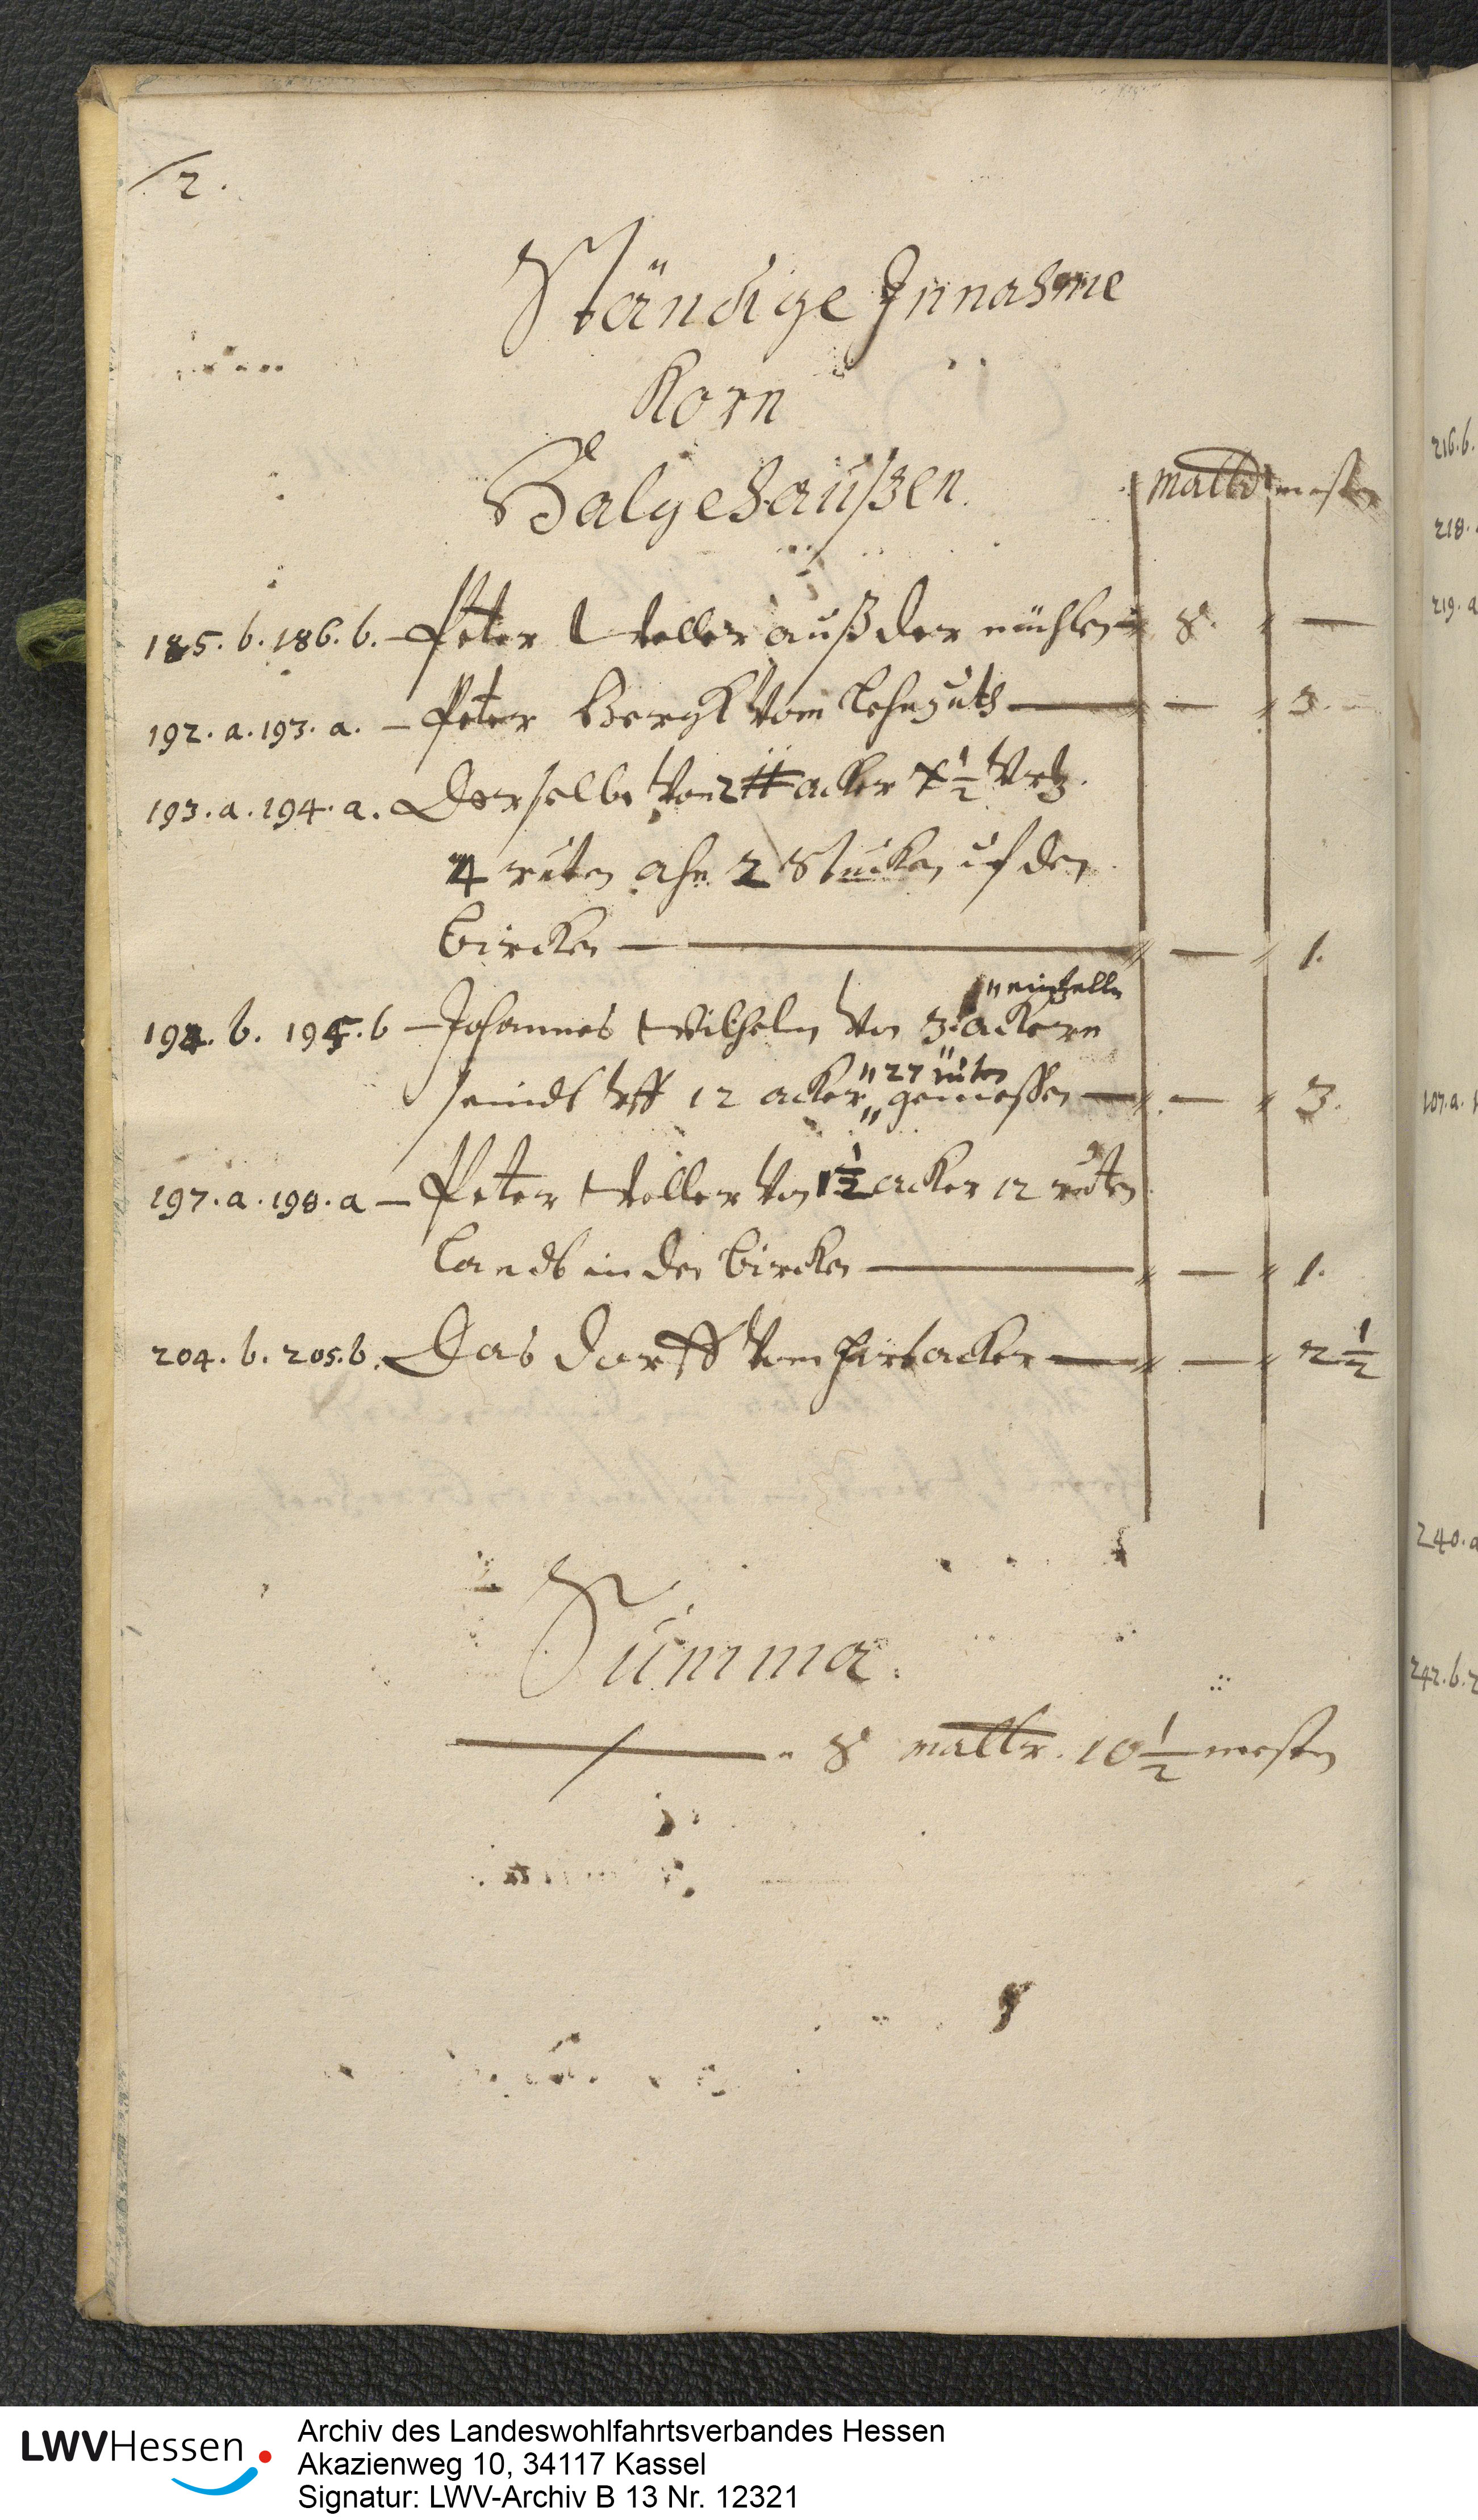 2.
Ständige Innahme
Korn
Balgehaußen.
maltr mesten
185. b. 186. b. — Peter Weller auß der mühlen 8. —
192. a. 193. a. — Peter Bergk vom Lehnguth — — 3.
193. a. 194. a. Derselbe von 2 acker 1/2 
4 ruten ahn 2 Stucken uf den
Bircken — — 1.
einzelln
194. b. 195. b — Johannes Wilhelm von 3. ackern
27 ruten
seindt uff 12 acker gemessen — — 3.
197. a. 198. a — Peter Weller von 1 1/2 acker 12 ruten
Lands in den Bircken — — 1.
204. b. 205. b. Das dorff vom acker — — 2 1/2
Summa.
8 maltr. 10 1/2 mesten
216. b.
218.
219. a
107. a.
240. a
242. b. 2
LWVHessen
Archiv des Landeswohlfahrtsverbandes Hessen
Akazienweg 10, 34117 Kassel
Signatur: LWV-Archiv B 13 Nr. 12321